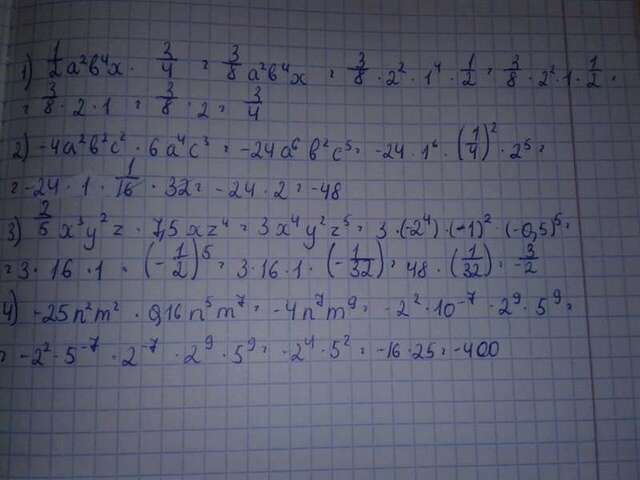 1) 1/2 a²b⁴x · 3/4 = 3/8 a²b⁴x = 3/8 · 2² · 1⁴ · 1/2 = 3/8 · 2² · 1 · 1/2 =
= 3/8 · 2 · 1 = 3/8 · 2 = 3/4
2) -4a²b²c² · 6a⁴c³ = -24a⁶b²c⁵ = -24 · 1⁶ · (1/4)² · 2⁵ =
= -24 · 1 · 1/16 · 32 = -24 · 2 = -48
3) 2/5 x³y²z · 7,5xz⁴ = 3x⁴y²z⁵ = 3 · (-2⁴) · (-1)² · (-0,5)⁵ =
= 3 · 16 · 1 · (-1/2)⁵ = 3 · 16 · 1 · (-1/32) = 48 · (1/32) = 3/-2
4) -25n²m² · 0,16n⁵m⁷ = -4n⁷m⁹ = -2² · 10⁻⁷ · 2⁹ · 5⁹ =
= -2² · 5⁻⁷ · 2⁻⁷ · 2⁹ · 5⁹ = -2⁴ · 5² = -16 · 25 = -400